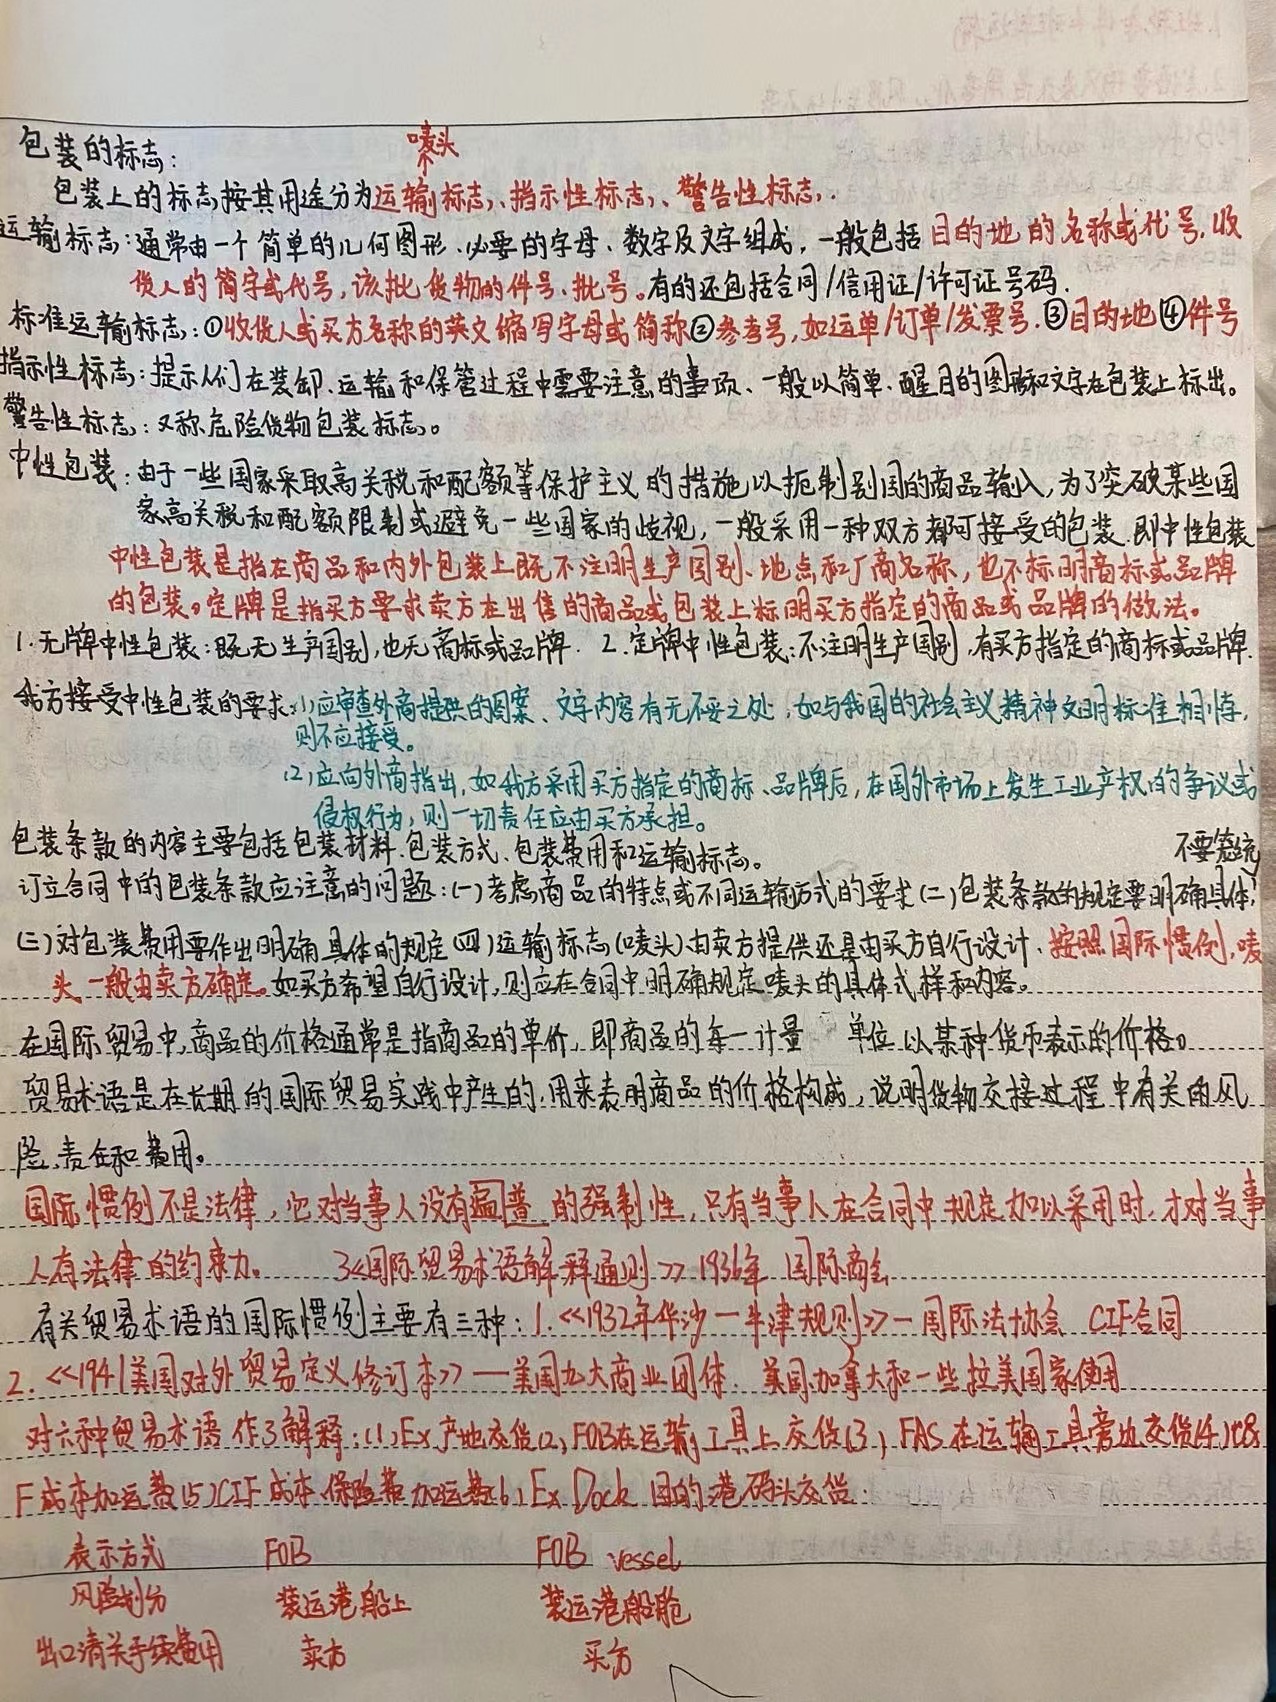 包装的标志:
唛头
包装上的标志按其用途分为运输标志、指示性标志、警告性标志.
运输标志:通常由一个简单的几何图形、必要的字母、数字及文字组成,一般包括目的地的名称或代号,收
货人的简字或代号,该批货物的件号、批号。有的还包括合同/信用证/许可证号码.
标准运输标志:①收货人或买方名称的英文缩写字母或简称②参考号,如运单/订单/发票号.③目的地④件号
指示性标志:提示人们在装卸、运输和保管过程中需要注意的事项、一般以简单、醒目的图形和文字在包装上标出。
警告性标志:又称危险货物包装标志。
中性包装:由于一些国家采取高关税和配额等保护主义的措施以扼制别国的商品输入,为了突破某些国
家高关税和配额限制或避免一些国家的歧视,一般采用一种双方都可接受的包装.即中性包装
中性包装是指在商品和内外包装上既不注明生产国别、地点和厂商名称,也不标明商标或品牌
的包装。定牌是指买方要求卖方在出售的商品或包装上标明买方指定的商品或品牌的做法。
1.无牌中性包装:既无生产国别,也无商标或品牌. 2.定牌中性包装:不注明生产国别,有买方指定的商标或品牌.
我方接受中性包装的要求:(1)应审查外商提供的图案、文字内容有无不妥之处,如与我国的社会主义精神文明标准相悖,
则不应接受。
(2)应向外商指出,如我方采用买方指定的商标、品牌后,在国外市场上发生工业产权的争议或
侵权行为,则一切责任应由买方承担。
包装条款的内容主要包括包装材料、包装方式、包装费用和运输标志。
不要笼统
订立合同中的包装条款应注意的问题:(一)考虑商品的特点或不同运输方式的要求(二)包装条款的规定要明确具体,
(三)对包装费用要作出明确具体的规定(四)运输标志(唛头)由卖方提供还是由买方自行设计、按照国际惯例,唛
头一般由卖方确定。如买方希望自行设计,则应在合同中明确规定唛头的具体式样和内容。
在国际贸易中,商品的价格通常是指商品的单价,即商品的每一计量 单位以某种货币表示的价格。
贸易术语是在长期的国际贸易实践中产生的,用来表明商品的价格构成,说明货物交接过程中有关的风
险、责任和费用。
国际惯例不是法律,它对当事人没有遍普的强制性,只有当事人在合同中规定加以采用时,才对当事
人有法律的约束力。 3《国际贸易术语解释通则》1936年 国际商会
有关贸易术语的国际惯例主要有三种:1.《1932年华沙—牛津规则》—国际法协会 CIF合同
2.《1941美国对外贸易定义修订本》—美国九大商业团体. 美国加拿大和一些拉美国家使用
对六种贸易术语作了解释:(1)Ex产地交货(2)FOB在运输工具上交货(3)FAS在运输工具旁边交货(4)C&
F成本加运费(5)CIF成本、保险费加运费(6)Ex Dock 目的港码头交货.
表示方式 FOB FOB vessel
风险划分 装运港船上 装运港船舱
出口清关手续费用 卖方 买方